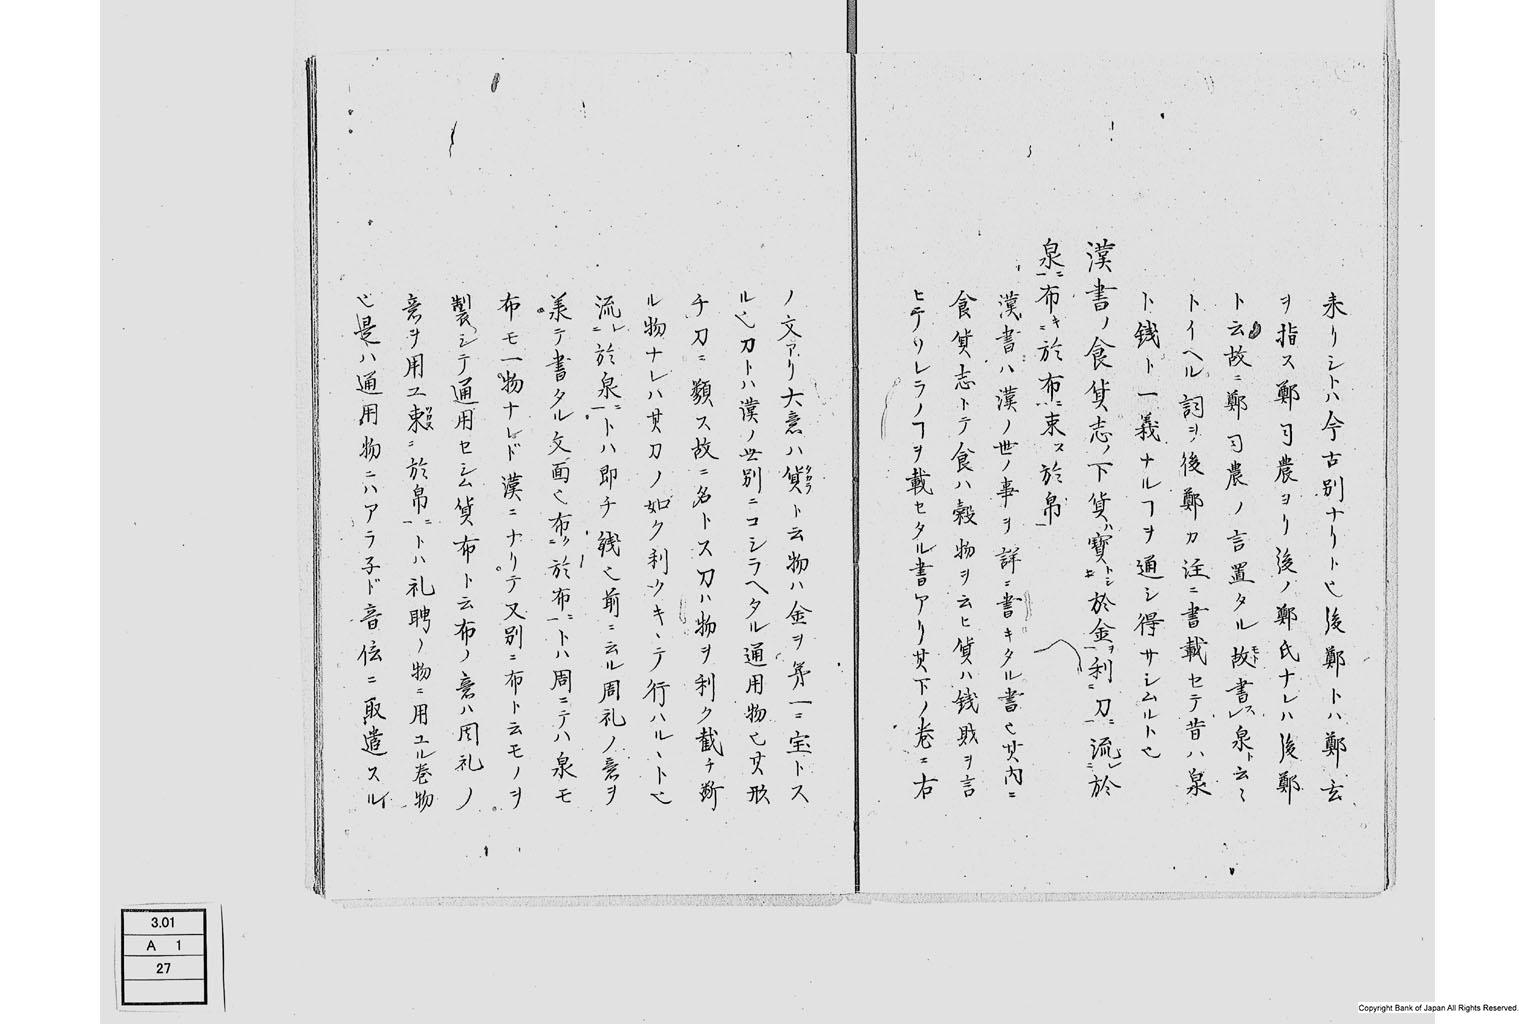 来リシトハ今古別ナリト也後鄭トハ鄭玄
ヲ指ス鄭司農ヨリ後ノ鄭氏ナレハ後鄭
ト云故ニ鄭司農ノ言置タル故書泉ト云々
トイヘル詞ヲ後鄭カ注ニ書載セテ昔ハ泉
ト銭ト一義ナルヿヲ通シ得サシムルト也
漢書ノ食貨志ノ下貨ハ宝トシ於金ヲ利ニ刀ニ流レ於
泉ニ布キニ於布ニ束ス於帛
漢書ハ漢ノ世ノ事ヲ詳ニ書キタル書也其内ニ
食貨志トテ食ハ穀物ヲ云ヒ貨ハ銭財ヲ言
ヒテソレラノヿヲ載セタル書アリ其下ノ巻ニ右
ノ文アリ大意ハ貨ト云物ハ金ヲ第一ニ宝トス
ル也刀トハ漢ノ世別ニコシラヘタル通用物也其形
チ刀ニ類ス故ニ名トス刀ハ物ヲ利ク截チ断
ル物ナレハ其刀ノ如ク利ツキヽテ行ハルヽト也
流レニ於泉ニトハ即チ銭也前ニ云ル周礼ノ意ヲ
美テ書タル文面也布クニ於布ニトハ周ニテハ泉モ
布モ一物ナレド漢ニナリテ又別ニ布ト云モノヲ
製シテ通用セシム貨布ト云布ノ意ハ周礼ノ
意ヲ用ユ束ニ於帛ニトハ礼聘ノ物ニ用ユル巻物
也是ハ通用物ニハアラ子ド音信ニ取遣スル
3.01
A 1
27
Copyright Bank of Japan All Rights Reserved.